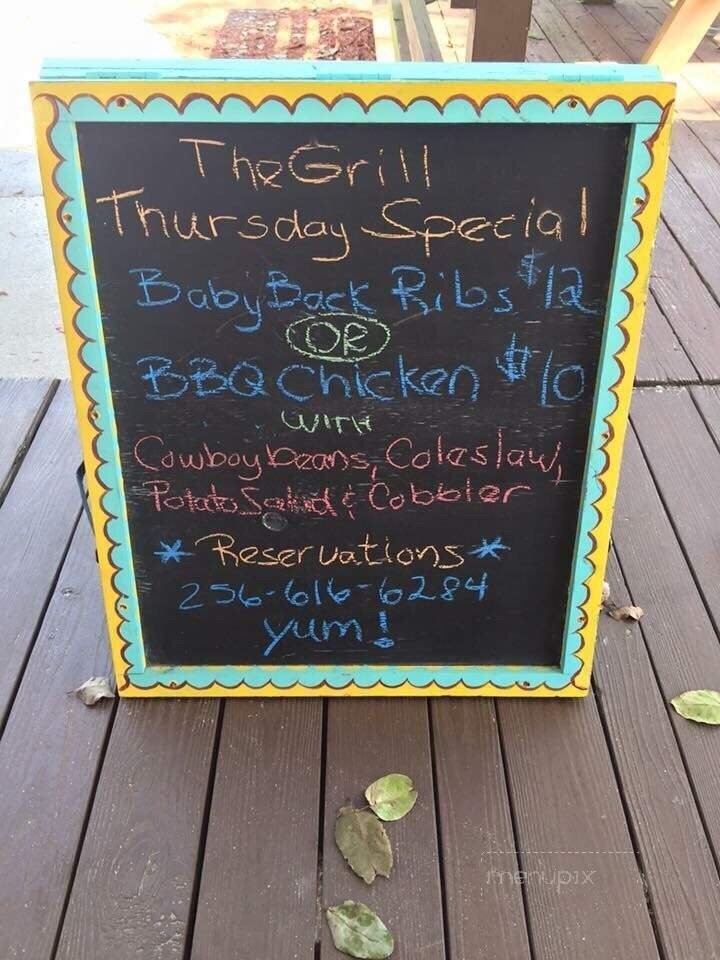 The Grill
Thursday Special
Baby Back Ribs $12
OR
BBQ Chicken $10
WITH
Cowboy beans, Coleslaw,
Potato Salad & Cobbler
* Reservations *
256-616-6284
yum!
menupix